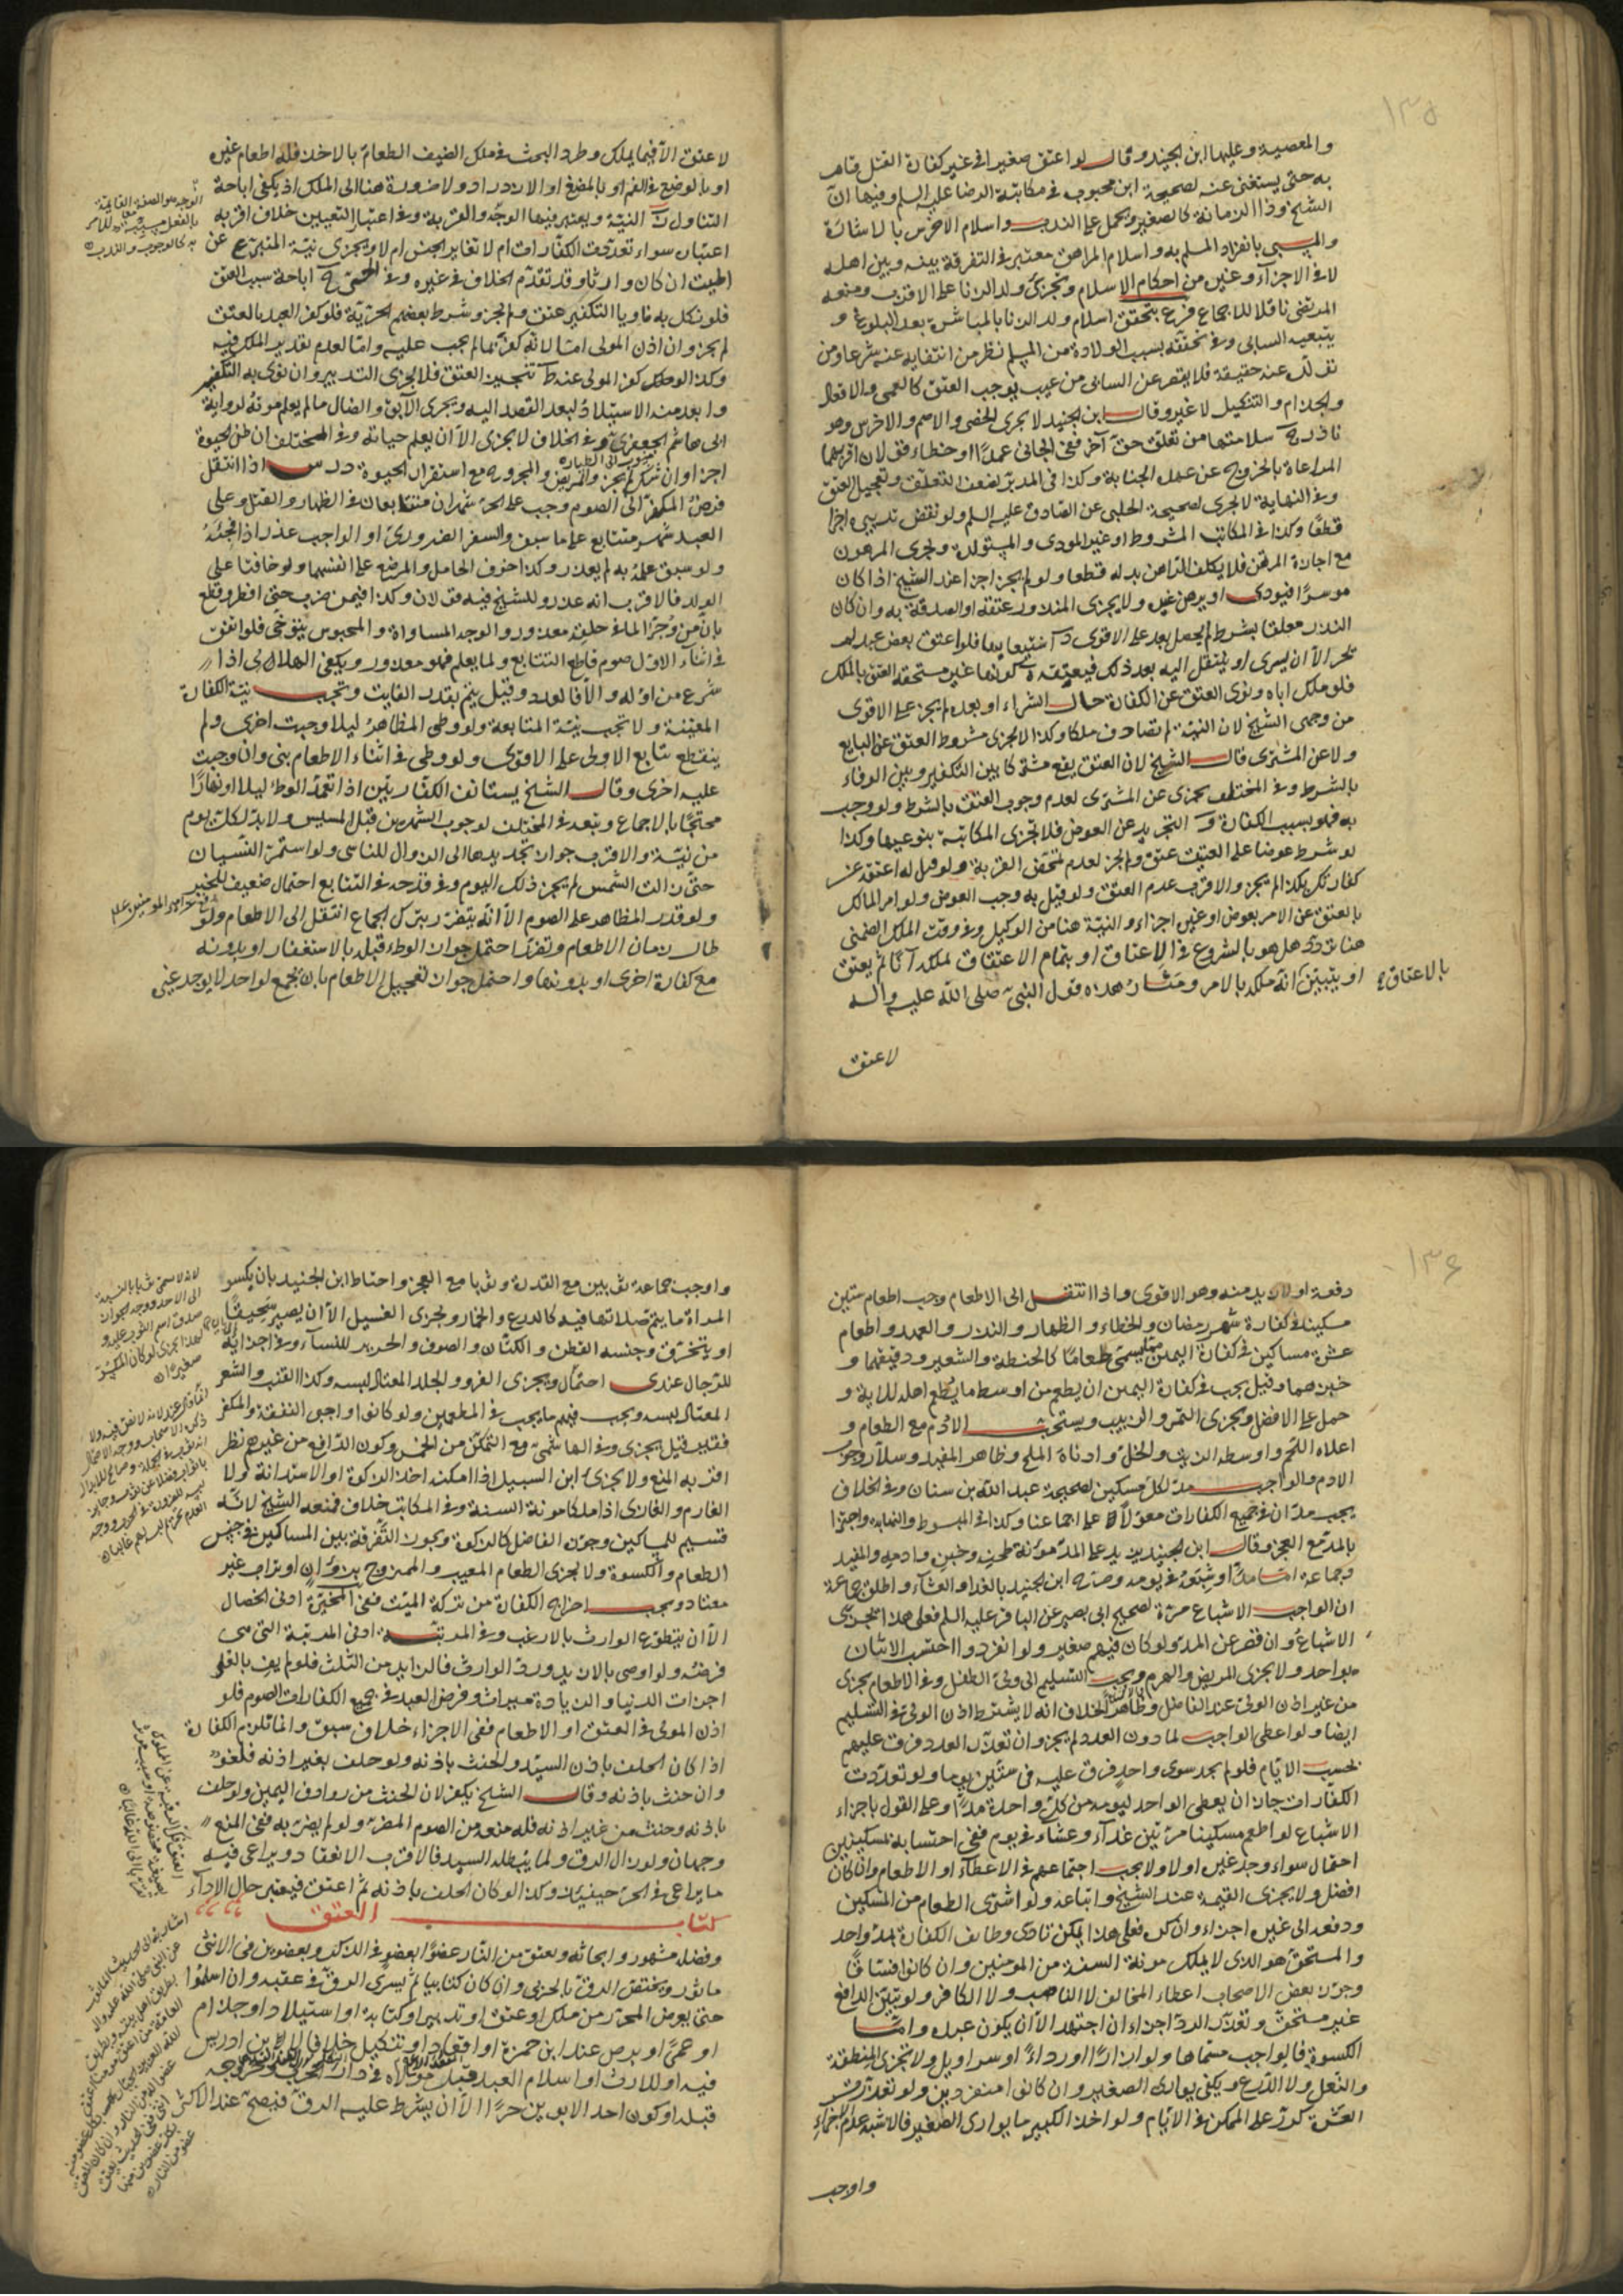 ١٣٥
والمعصية وعليها ابن الجنيد وقال لو اعتق صغيرا في غير كفارة القتل قام
به حتى يستغنى عنه لصحيحة ابن محبوب في مكاتبة الرضا عليه السلم وفيها ان
الشيخ وذا الزمانة كالصغير ويحمل على الندب واسلام الاخرس بالاشارة
والمسبي بانفراد المسلم به واسلام المراهق معتبر في التفرقة بينه وبين اهله
لا في الاجزاء وغيره من احكام الاسلام ويجزئ ولد الزنا على الاقرب ومنعه
المرتضى ناقلا للاجماع فرع يتحقق اسلام ولد الزنا بالمباشرة بعد البلوغ و
بتبعية السابي وفي تحققه بسبب الولادة من المسلم نظر من انتفايه عنه شرعا ومن
تولده عنه حقيقة فلا يقصر عن السابى من عيب يوجب العتق كالعمى والاقعاد
والجذام والتنكيل لا غير وقال ابن الجنيد لا يجزى الخصي والاصم والاخرس وهو
نادر سلامتها من تعلق حق آخر ففي الجاني عمدا او خطاء قولان اقربهما
المراعاة بالخروج عن عهدة الجناية وكذا في المدبر لضعف التعلق وتعجيل العتق
وفي النهاية لا يجزى لصحيحة الحلبي عن الصادق عليه السلم ولو نقض تدبيره اجزا
قطعا وكذا في المكاتب المشروط او غير المودى والمستولدة ويجزى المرهون
مع اجازة المرتهن فلا يكلف الراهن بدله قطعا ولو لم يجز اجزا عند الشيخ اذا كان
موسرا فيودى او يرهن غيره ولا يجزى المنذور عتقه او الصدقة به وان كان
النذر معلقا بشرط لم يحصل بعد على الاقوى استيعابها فلو اعتق بعض عبد لم
يجز الا ان يسرى او ينتقل اليه بعد ذلك فيعتقه كونها غير مستحقة العتق بالملك
فلو ملك اباه ونوى العتق عن الكفارة حال الشراء او بعده لم يجز على الاقوى
من وجهى الشيخ لان النية لم تصادف ملكا وكذا لا يجزى مشروط العتق عن البايع
ولا عن المشترى قال الشيخ لان العتق يقع مشتركا بين التكفير وبين الوفاء
بالشرط وفي المختلف يجزى عن المشترى لعدم وجوب العتق بالشرط ولو وجب
به فهو بسبب الكفارة التجريد عن العوض فلا تجزى المكاتبة بنوعيها وكذا
لو شرط عوضا على العتيق عتق ولم يجز لعدم تمحض القربة ولو قيل له اعتقه عن
كفارتك بكذا لم يجز والاقرب عدم العتق ولو قيل به وجب العوض ولو امر المالك
بالعتق عن الامر بعوض او غيره اجزاء والنية هنا من الوكيل وفي وقت الملك الضمني
هنا تردد هل هو بالشروع في الاعتاق او بتمام الاعتاق ملكه آنا ثم يعتق
او يتبين انه ملكه بالامر ومثار هذه قول النبي صلى الله عليه واله
بالاعتاق
لا عتق
لا عتق الا فيما يملك وطرد البحث في ملك الضيف الطعام بالاخذ فله اطعام غيره
او بالوضع في الفم او بالمضغ او الازدراد ولا ضرورة هنا الى الملك اذ يكفى اباحة
التناول النية ويعتبر فيها الوجه والقربة وفي اعتبار التعيين خلاف اقربه
اعتباره سواء تعددت الكفارات ام لا تغاير الجنس ام لا ويجزى نية المتبرع عن
الميت ان كان وارثا وقد تقدم الخلاف في غيره وفي الحي اباحة سبب العتق
فلو نكل به ناويا التكفير عتق ولم يجز وشرط بعضهم الحرية فلو كفر العبد بالعتق
لم يجز وان اذن المولى اما لانه كفر بما لم يجب عليه واما لعدم تقدير الملك فيه
وكذا لو كفر المولى عنه تنجيز العتق فلا يجزى التدبير وان نوى به التكفير
وابعد منه الاستيلاد لبعد القصد اليه ويجزى الآبق والضال ما لم يعلم موته لرواية
ابى هاشم الجعفري وفي الخلاف لا يجزى الا ان يعلم حياته وفي المختلف ان ظن الحيوة
اجزا وان شك لم يجز والمريض والمجروح مع استقرار الحيوة درس اذا انتقل
فرض المكفر الى الصوم وجب على الحر شهران متتابعان في الظهار والقتل وعلى
العبد شهر متتابع على ما سبق والسفر الضروري او الواجب عذر اذا فجئه
ولو سبق علمه به لم يعذر وكذا خوف الحامل والمرضع على انفسهما ولو خافتا على
الولد فالاقرب انه عذر وللشيخ فيه قولان وكذا فيمن ضرب حتى افطر وقطع
بان من وجر الماء في حلقه معذور والوجه المساواة والمحبوس يتوخى فلو اتفق
في اثناء الاول صوم قاطع التتابع ولما يعلم فهو معذور ويكفى الهلالى اذا
شرع من اوله والا فالعدد وقيل يتم بقدر الفايت وتجب نية الكفارة
المعينة ولا تجب نية المتابعة ولو وطى المظاهر ليلا وجبت اخرى ولم
ينقطع تتابع الاولى على الاقوى ولو وطى في اثناء الاطعام بنى وان وجبت
عليه اخرى وقال الشيخ يستانف الكفارتين اذا تعمد الوطء ليلا او نهارا
محتجا بالاجماع وتبعه في المختلف لوجوب الشهرين قبل المسيس ولا بد لكل يوم
من نية والاقرب جواز تجديدها الى الزوال للناسى ولو استمر النسيان
حتى زالت الشمس لم يجز ذلك اليوم وفي قدحه في التتابع احتمال ضعيف للخبر
ولو قدر المظاهر على الصوم الا انه يتضرر بترك الجماع انتقل الى الاطعام ولو
طال زمان الاطعام وتضرر احتمل جواز الوطء قبله بالاستغفار او بدونه
مع كفارة اخرى او بدونها واحتمل جواز تعجيل الاطعام بان يجمع لواحد لا يوجد غيره
١٣٦
دفعة او لا بد منه وهو الاقوى واذا انتقل الى الاطعام وجب اطعام ستين
مسكينا في كفارة شهر رمضان والخطاء والظهار والنذر والعمد واطعام
عشرة مساكين في كفارة اليمين مما يسمى طعاما كالحنطة والشعير ودقيقهما و
خبزهما وقيل يجب في كفارة اليمين ان يطعم من اوسط ما يطعم اهله للاية و
حمل على الافضل ويجزى التمر والزبيب ويستحب الادم مع الطعام و
اعلاه اللحم واوسطه الزيت والخل وادناه الملح وظاهر المفيد وسلار وجوب
الادم والواجب مد لكل مسكين لصحيحة عبد الله بن سنان وفي الخلاف
يجب مدان في جميع الكفارات معولا على اجماعنا وكذا في المبسوط والنهاية واجتزا
بالمد مع العجز وقال ابن الجنيد يزيد على المد مؤنة طحنه وخبزه وادمه والمفيد
وجماعة اما مدا او شبعه في يومه وصرح ابن الجنيد بالغداء والعشاء واطلق جماعة
ان الواجب الاشباع مرة لصحيح ابى بصير عن الباقر عليه السلم فعلى هذا يجزى
الاشباع وان قصر عن المد ولو كان فيهم صغير ولو انفردوا احتسب الاثنان
بواحد ولا يجزى المريض والهرم ويجب التسليم الى ولى الطفل وفي الاطعام يجزى
من غير اذن الولى عند الفاضل وظاهر الخلاف انه لا يشترط اذن الولى في التسليم
ايضا ولو اعطى الواجب لما دون العدد لم يجز وان تعذر العدد فرق عليهم
بحسب الايام فلو لم يجد سوى واحد فرق عليه في ستين يوما ولو تعددت
الكفارات جاز ان يعطى الواحد ليومه من كل واحدة مدا وعلى القول باجزاء
الاشباع لو اطعم مسكينا مرتين غداء وعشاء في يوم ففي احتسابه بمسكينين
احتمال سواء وجد غيره اولا ولا يجب اجتماعهم في الاعطاء او الاطعام وان كان
افضل ولا يجزى القيمة عند الشيخ واتباعه ولو اشترى الطعام من المسكين
ودفعه الى غيره اجزاء وان كره فعلى هذا يمكن تادى وظايف الكفارة بمد واحد
والمستحق هو الذى لا يملك مونة السنة من المومنين وان كانوا فساقا
وجوز بعض الاصحاب اعطاء المخالف لا الناصب ولا الكافر ولو تبين الدافع
غير مستحق وتعذر الرد اجزاء ان اجتهد الا ان يكون عبده واما
الكسوة فالواجب مسماها ولو ازارا او رداء او سراويل ولا تجزى المنطقة
والنعل ولا الدرع ويكفى يوارى الصغير وان كانوا منفردين ولو تعذرت
العشرة كرر على الممكن في الايام ولو اخذ الكبير ما يوارى الصغير فالاشبه عدم الاجزاء
واوجب
واوجب جماعة ثوبين مع القدرة وثوبا مع العجز واحتاط ابن الجنيد بان يكسو
المراة ما يتم صلاتها فيه كالدرع والخمار ويجزى الغسيل الا ان يصير سحيقا
او يتخرق وجنسه القطن والكتان والصوف والحرير للنساء وفي اجزائه
للرجال عندى احتمال ويجزى الفرو والجلد المعتاد لبسه وكذا القنب والشعر
المعتاد لبسه ويجب فيهم ما يجب في المطعمين ولو كانوا واجبى النفقة والمكفر
فقير قيل يجزى وفي الهاشمى مع التمكن من الخمس وكون الدافع من غيرهم نظر
اقربه المنع ولا يجزئ ابن السبيل اذا امكنه اخذ الزكوة او الاستدانة ولا
الغارم والغازى اذا ملكا مونة السنة وفي المكاتب خلاف فمنعه الشيخ لانه
قسيم للمساكين وجوزه الفاضل كالزكوة ويجوز التفرقة بين المساكين في جنس
الطعام والكسوة ولا يجزى الطعام المعيب والممزوج بزوان او تراب غير
معتاد ويجب اخراج الكفارة من تركة الميت ففى المخيرة ادنى الخصال
الا ان يتطوع الوارث بالارغب وفي المرتبة ادنى المرتبة التى هى
فرضه ولو اوصى بالازيد ورد الوارث فالزايد من الثلث فلو لم يف بالعليا
اجزات الدنيا والزيادة ميراث وفرض العبد في جميع الكفارات الصوم فلو
اذن المولى في العتق او الاطعام ففي الاجزاء خلاف سبق وانما تلزم الكفارة
اذا كان الحلف باذن السيد والحنث باذنه ولو حلف بغير اذنه فلغو
وان حنث باذنه وقال الشيخ يكفر لان الحنث من روادف اليمين ولو حلف
باذنه وحنث من غير اذنه فله منعه من الصوم المضر به ولو لم يضر به ففى المنع
وجهان ولو زال الرق ولما يبطله السيد فالاقرب الانعقاد ويراعى فيه
ما يراعى في الحر حينئذ وكذا لو كان الحلف باذنه ثم اعتق فيعتبر حال الاداء
كتاب العتق
وفضله مشهور وابحاثه ويعتق من النار عضوا بعضو في الذكر وبعضوين في الانثى
ماثور ويختص الرق بالحربى وان كان كتابيا ثم يسرى الرق في عقبه وان اسلموا
حتى يعرض المحرر من ملك او عتق او تدبير او كتابة او استيلاد او جذام
او عمى او برص عند ابن حمزة او اقعاد او تنكيل خلافا لابن ادريس
فيه او للارث او اسلام العبد قبل مولاه في دار الحرب وخروجه
قبله او كون احد الابوين حرا الا ان يشترط عليه الرق فيصح عند الاكثر